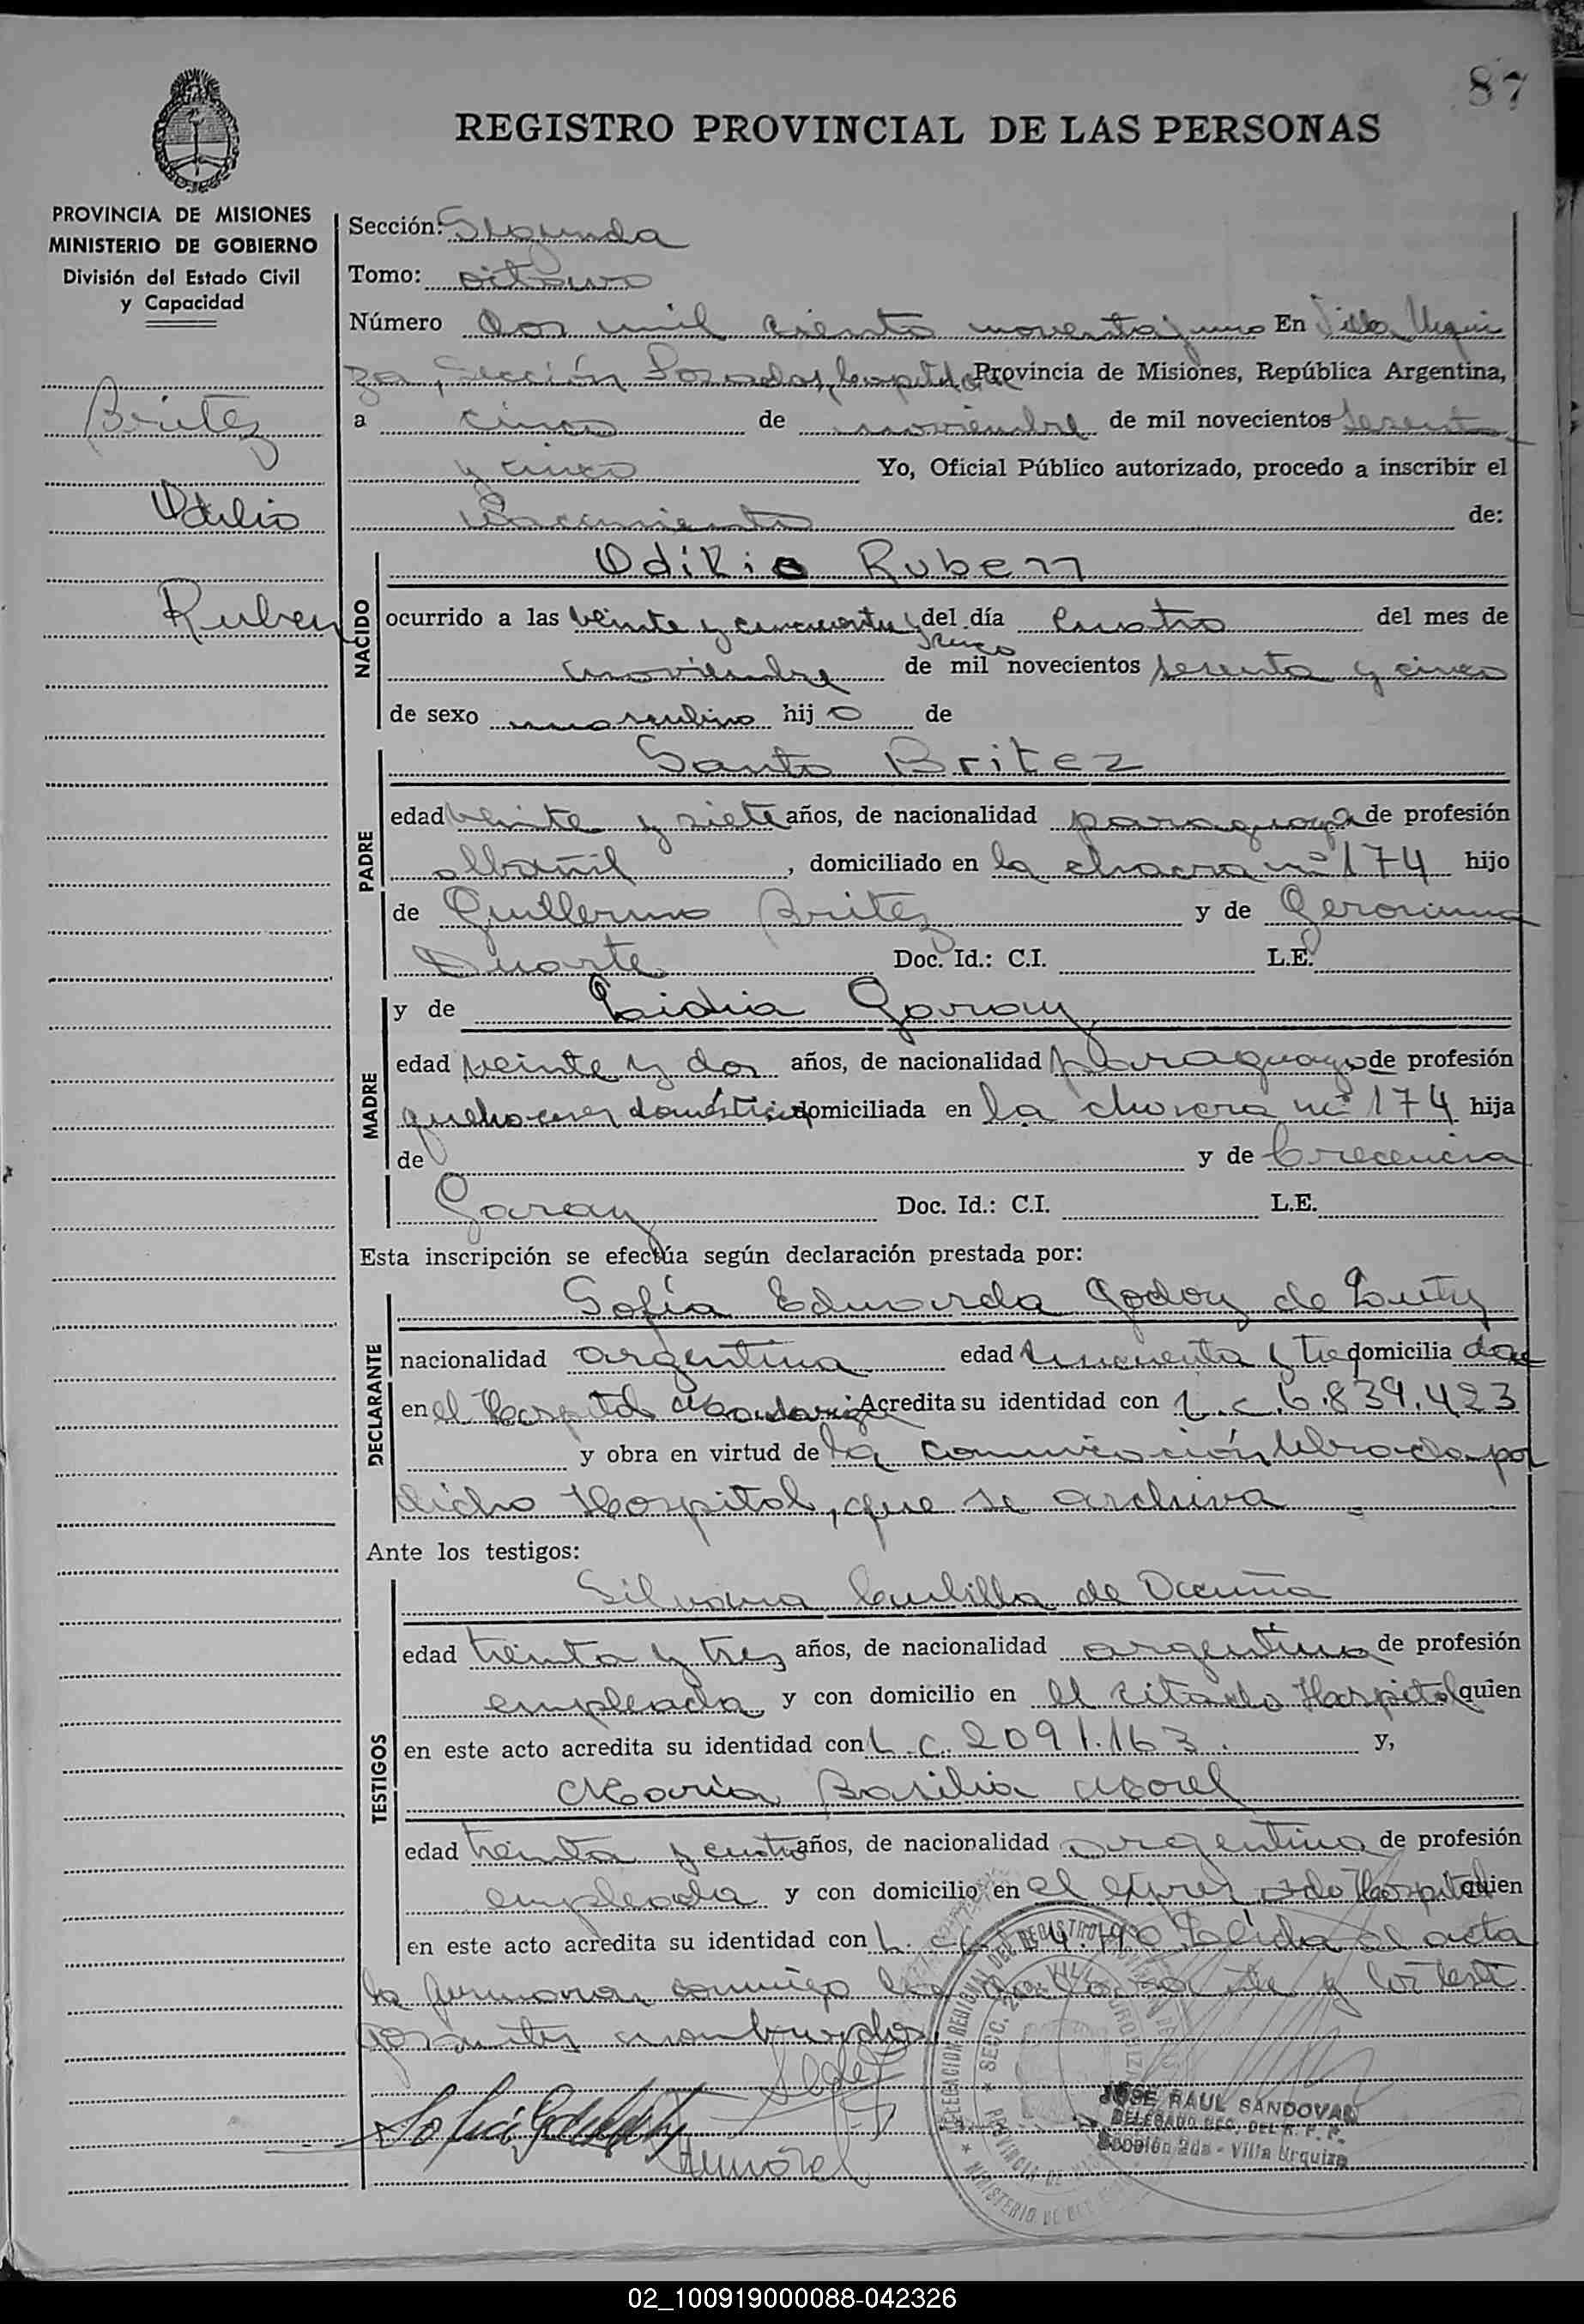 87
REGISTRO PROVINCIAL DE LAS PERSONAS
PROVINCIA DE MISIONES
MINISTERIO DE GOBIERNO
División del Estado Civil
y Capacidad
Britez
Odilio
Ruben
Sección: Segunda
Tomo: octavo
Número dos mil ciento noventa y uno En Villa Urqui
za, Sección Posadas, Capital de Provincia de Misiones, República Argentina,
a cinco de noviembre de mil novecientos sesenta
y cinco Yo, Oficial Público autorizado, procedo a inscribir el
Nacimiento de:
NACIDO
Odilio Ruben
ocurrido a las veinte y cincuenta y cinco del día cuatro del mes de
noviembre de mil novecientos sesenta y cinco
de sexo masculino hijo de
PADRE
Santo Britez
edad veinte y siete años, de nacionalidad paraguaya de profesión
albañil, domiciliado en la chacra nº 174 hijo
de Guillermo Britez y de Geronima
Duarte Doc. Id.: C.I. L.E.
MADRE
y de Lidia Garay
edad veinte y dos años, de nacionalidad paraguaya de profesión
quehaceres domésticos domiciliada en la chacra nº 174 hija
de y de Crecencia
Garay Doc. Id.: C.I. L.E.
Esta inscripción se efectúa según declaración prestada por:
DECLARANTE
Sofía Eduarda Godoy de
nacionalidad argentina edad cincuenta y tres domiciliada
en el Hospital Madariaga Acredita su identidad con L.C. 6.839.423
y obra en virtud de la comunicación librada por
dicho Hospital, que se archiva
Ante los testigos:
TESTIGOS
Silvana Cubilla de Ocuña
edad treinta y tres años, de nacionalidad argentina de profesión
empleada y con domicilio en el citado Hospital quien
en este acto acredita su identidad con L.C. 2091.163. y,
María Basilia Morel
edad treinta y cuatro años, de nacionalidad argentina de profesión
empleada y con domicilio en el expresado Hospital quien
en este acto acredita su identidad con L.C. Leída el acta
la firmaron conmigo la declarante y los testi
gos antes nombrados
JOSE RAUL SANDOVAL
DELEGADO REG. DEL R. P. P.
Sección 2da - Villa Urquiza
02_100919000088-042326